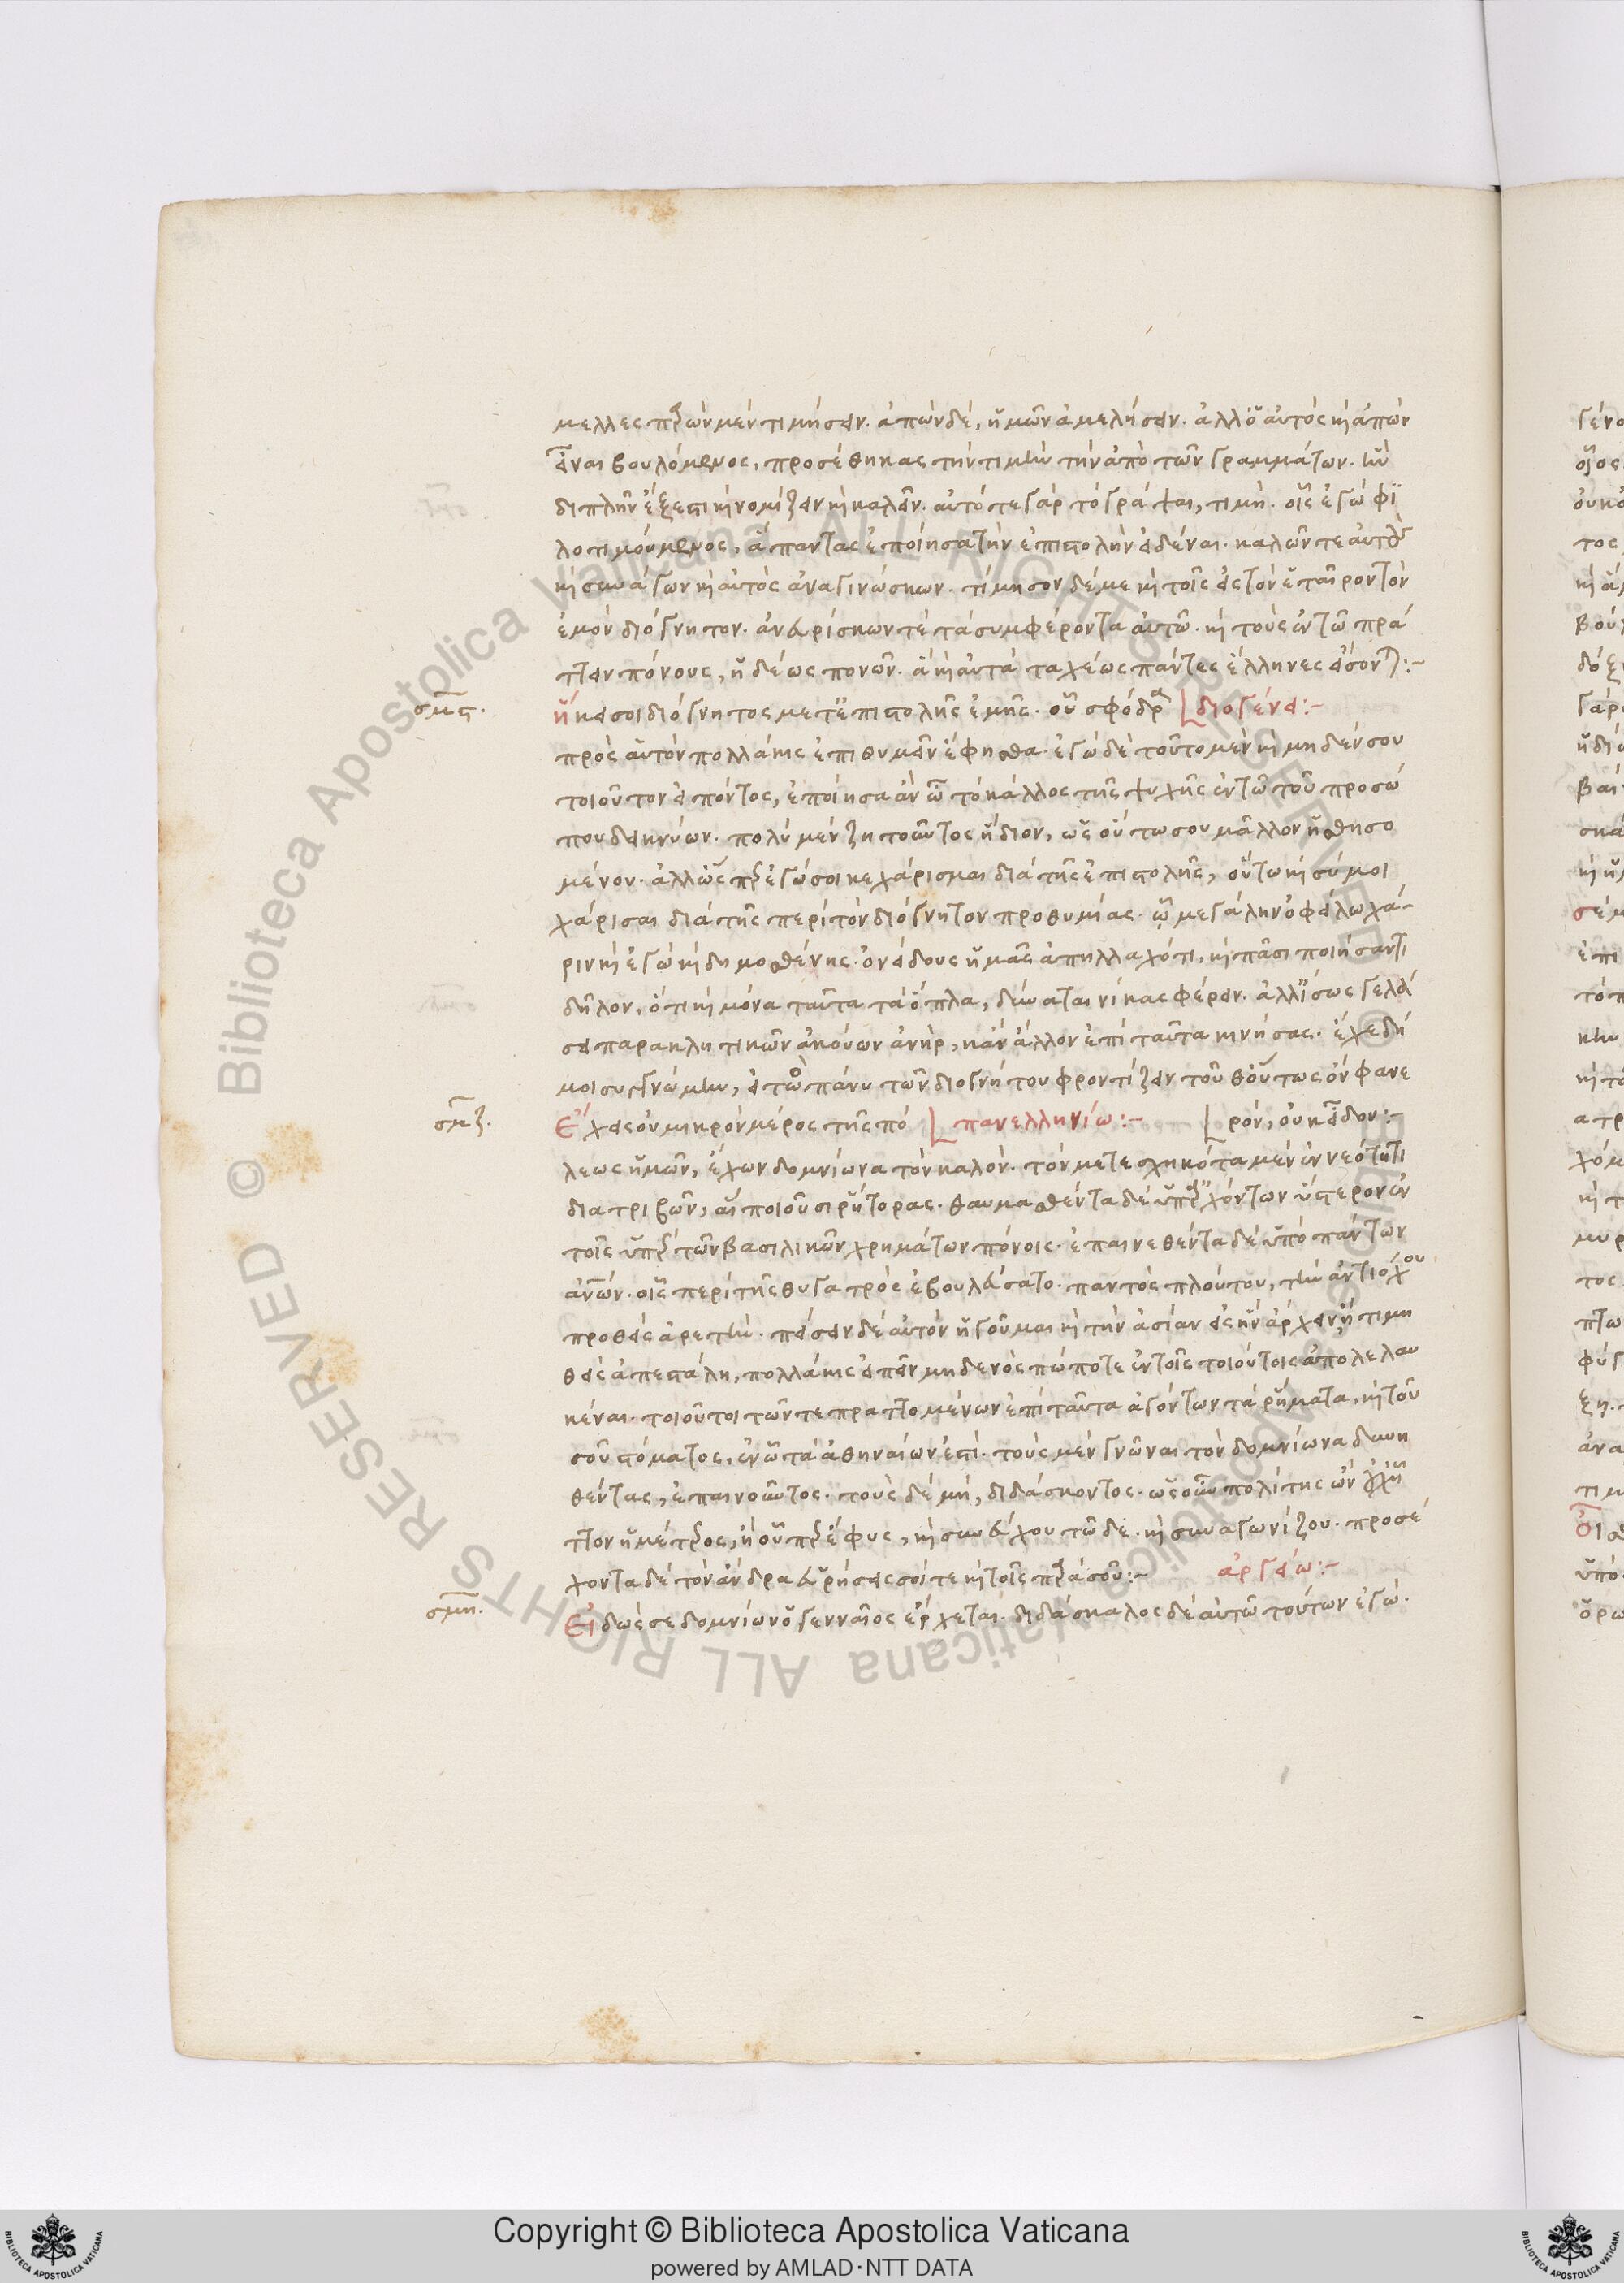 μελλες παρὼν μὲν τιμήσειν. ἀπὼν δὲ, ἡμῶν ἀμελήσειν. ἀλλ' ὁ αὐτὸς καὶ ἀπὼν
εἶναι βουλόμενος, προσέθηκας τὴν τιμὴν τὴν ἀπὸ τῶν γραμμάτων. ἣν
διπλῆν ἔξεστι καὶ νομίζειν καὶ καλεῖν. αὐτό τε γὰρ τὸ γράψαι, τιμή. οἷς ἐγὼ φι
λοτιμούμενος, ἅπαντας ἐποίησα τὴν ἐπιστολὴν εἰδέναι. καλῶν τε αὐτοὺς
καὶ συνάγων καὶ αὐτὸς ἀναγινώσκων. τίμησον δέ με καὶ τοῖς εἰς τὸν ἑταῖρον τὸν
ἐμὸν διόγνητον. ἀνευρίσκων τὲ τὰ συμφέροντα αὐτῷ. καὶ τοὺς ἐν τῷ πρά
ττειν πόνους, ἡδέως πονῶν. ἃ καὶ αὐτὰ ταχέως πάντες ἕλληνες εἴσονται:-
σμϛ. ἥκει σοι διόγνητος μετ' ἐπιστολῆς ἐμῆς. οὗ σφόδρα διογένει:-
πρὸς αὐτὸν πολλάκις ἐπιθυμεῖν ἔφησθα. ἐγὼ δὲ τοῦτο μὲν καὶ μηδέν σου
τοιοῦτον εἰπόντος, ἐποίησα ἂν τὸ κάλλος τῆς ψυχῆς ἐν τῷ τοῦ προσώ
που δεικνύων. πολὺ μὲν ζητοῦντος ἥδιον, ὡς οὕτω σου μᾶλλον ἡσθησο
μένου. ἀλλ' ὥσπερ ἐγώ σοι κεχάρισμαι διὰ τῆς ἐπιστολῆς, οὕτω καὶ σύ μοι
χάρισαι διὰ τῆς περὶ τὸν διόγνητον προθυμίας. ᾧ μεγάλην ὀφείλω χά-
ριν καὶ ἐγὼ καὶ δημοσθένης. ὀνείδους ἡμᾶς ἀπηλλαχότι, καὶ πᾶσι ποιήσαντι
δῆλον, ὅτι καὶ μόνα ταῦτα τὰ ὅπλα, δύναται νίκας φέρειν. ἀλλ' ἴσως γελά
σει παρακλητικῶν ἀκούων ἀνὴρ, κἂν ἄλλον ἐπὶ ταῦτα κινήσας. ἔχε δή
μοι συγγνώμην, εἰ τῷ πάνυ τῶν διογνήτου φροντίζειν τοῦθ' οὕτως ὂν φανε
σμζ. ἔχεις οὐ μικρὸν μέρος τῆς πό πανελληνίω:- ρὸν, οὐκ εἶδον:-
λεως ἡμῶν, ἔχων δομνίωνα τὸν καλὸν. τὸν μετεσχηκότα μὲν ἐν νεότητι
διατριβῶν, αἳ ποιοῦσι ῥήτορας. θαυμασθέντα δὲ ὑπ' ἀρχόντων ὕστερον ἐν
τοῖς ὑπὲρ τῶν βασιλικῶν χρημάτων πόνοις. ἐπαινεθέντα δὲ ὑπὸ πάντων
ἀνθρώπων. οἷς περὶ τῆς θυγατρὸς ἐβουλεύσατο. παντὸς πλούτου, τὴν ἀντιόχου
προθεὶς ἀρετὴν. πείσειν δὲ αὐτὸν ἡγοῦμαι καὶ τὴν ἀσίαν εἰς ἣν ἄρχειν τιμη
θεὶς ἀπεστάλη, πολλάκις εἰπεῖν μηδενὸς πώποτε ἐν τοῖς τοιούτοις ἀπολελαυ
κέναι. τοιοῦτοι τῶν τε πραττομένων ἐπὶ ταῦτα ἀγόντων τὰ ῥήματα, καὶ τοῦ
σοῦ στόματος, ἐν ᾧ τὰ ἀθηναίων ἐστί. τοὺς μὲν γνῶναι τὸν δομνίωνα δυνη
θέντας, ἐπαινοῦντος. τοὺς δὲ μή, διδάσκοντος. ὡς οὖν πολίτης ὢν
ττον ἡμέτερος, ἢ οὗπερ ἔφυς, καὶ συνεύχου τῷδε. καὶ συναγωνίζου. προσέ
χοντα δὲ τὸν ἄνδρα εὑρήσεις σοί τε καὶ τοῖς παρὰ σοῦ:- ἀργείω:-
σμη. εἰδὼς σε δομνίων ὁ γενναῖος ἔρχεται. διδάσκαλος δὲ αὐτῷ τούτων ἐγώ.
© Biblioteca Apostolica Vaticana ALL RIGHTS RESERVED © Biblioteca Apostolica Vaticana ALL RIGHTS RESERVED
Copyright © Biblioteca Apostolica Vaticana
powered by AMLAD·NTT DATA
BIBLIOTECA APOSTOLICA VATICANA
BIBLIOTECA APOSTOLICA VATICANA